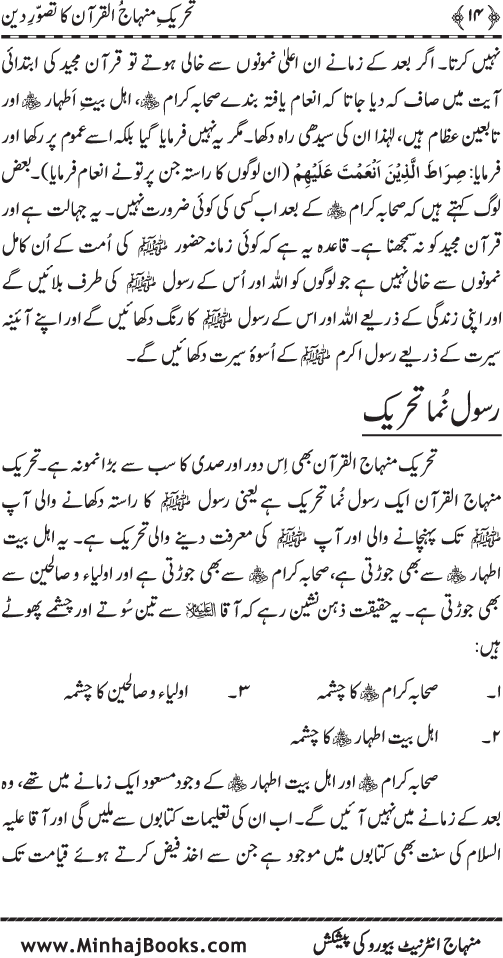 ﴿۱۴﴾ تحریکِ منہاجُ القرآن کا تصوّرِ دین
نہیں کرتا۔ اگر بعد کے زمانے ان اعلیٰ نمونوں سے خالی ہوتے تو قرآن مجید کی ابتدائی
آیت میں صاف کہہ دیا جاتا کہ انعام یافتہ بندے صحابہ کرام ﷺ، اہل بیتِ اَطہار ﷺ اور
تابعین عظام ہیں، لہٰذا ان کی سیدھی راہ دکھا۔ مگر یہ نہیں فرمایا گیا بلکہ اسے عموم پر رکھا اور
فرمایا: صِرَاطَ الَّذِيْنَ اَنْعَمْتَ عَلَيْهِمْ (ان لوگوں کا راستہ جن پر تو نے انعام فرمایا)۔ بعض
لوگ کہتے ہیں کہ صحابہ کرام ﷺ کے بعد اب کسی کی کوئی ضرورت نہیں۔ یہ جہالت ہے اور
قرآن مجید کو نہ سمجھنا ہے۔ قاعدہ یہ ہے کہ کوئی زمانہ حضور ﷺ کی اُمت کے اُن کامل
نمونوں سے خالی نہیں ہے جو لوگوں کو اللہ اور اُس کے رسول ﷺ کی طرف بلائیں گے
اور اپنی زندگی کے ذریعے اللہ اور اس کے رسول ﷺ کا رنگ دکھائیں گے اور اپنے آئینہ
سیرت کے ذریعے رسول اکرم ﷺ کے اُسوۂ سیرت دکھائیں گے۔
رسول نُما تحریک
تحریک منہاج القرآن بھی اِس دور اور صدی کا سب سے بڑا نمونہ ہے۔ تحریک
منہاج القرآن ایک رسول نُما تحریک ہے یعنی رسول ﷺ کا راستہ دکھانے والی آپ
ﷺ تک پہنچانے والی اور آپ ﷺ کی معرفت دینے والی تحریک ہے۔ یہ اہل بیت
اطہار ﷺ سے بھی جوڑتی ہے، صحابہ کرام ﷺ سے بھی جوڑتی ہے اور اولیاء و صالحین سے
بھی جوڑتی ہے۔ یہ حقیقت ذہن نشین رہے کہ آقا علیہ السلام سے تین سُوتے اور چشمے پھوٹے
ہیں:
۱۔ صحابہ کرام ﷺ کا چشمہ ۳۔ اولیاء و صالحین کا چشمہ
۲۔ اہل بیت اطہار ﷺ کا چشمہ
صحابہ کرام ﷺ اور اہل بیت اطہار ﷺ کے وجود مسعود ایک زمانے میں تھے، وہ
بعد کے زمانے میں نہیں آئیں گے۔ اب ان کی تعلیمات کتابوں سے ملیں گی اور آقا علیہ
السلام کی سنت بھی کتابوں میں موجود ہے جن سے اخذ فیض کرتے ہوئے قیامت تک
منہاج انٹرنیٹ بیورو کی پیشکش www.MinhajBooks.com